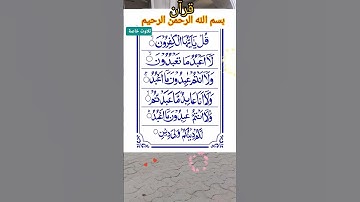 قرآن
بسم الله الرحمن الرحيم
تلاوت خاصة
قُلْ يٰٓاَيُّهَا الْكٰفِرُوْنَ
لَآ اَعْبُدُ مَا تَعْبُدُوْنَ
وَلَآ اَنْتُمْ عٰبِدُوْنَ مَآ اَعْبُدُ
وَلَآ اَنَا عَابِدٌ مَّا عَبَدْتُّمْ
وَلَآ اَنْتُمْ عٰبِدُوْنَ مَآ اَعْبُدُ
لَكُمْ دِيْنُكُمْ وَلِيَ دِيْنِ